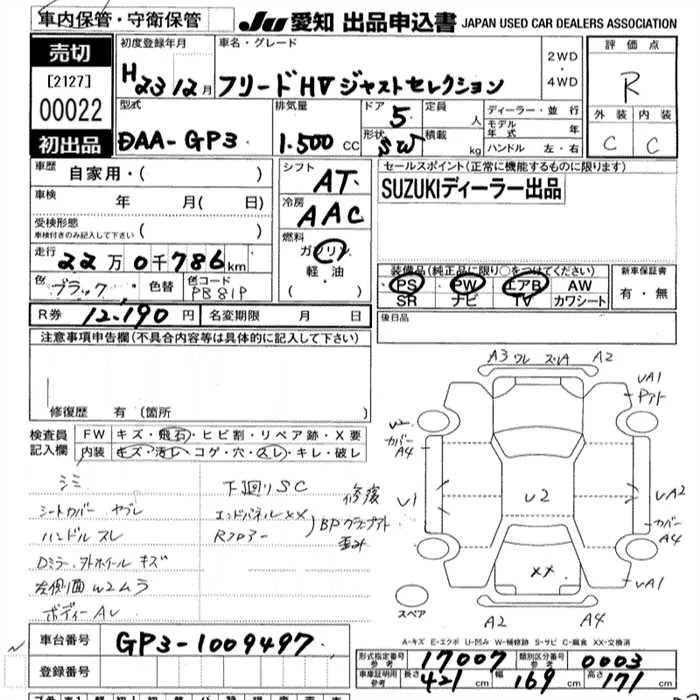 車内保管・守衛保管
JU 愛知 出品申込書 JAPAN USED CAR DEALERS ASSOCIATION
売切
[2127]
00022
初出品
初度登録年月
H23 12月
車名・グレード
フリードHV ジャストセレクション
2WD
・
4WD
評価点
R
外装 内装
C C
型式
DAA-GP3
排気量
1.500 cc
ドア 5
形状 SW
定員 人
積載 kg
ディーラー・並行
モデル年式 年
ハンドル 左・右
車歴
自家用・( )
車検 年 月( 日)
受検形態
車検付きのみ記入して下さい ( )
走行
22万0千786km
色 ブラック 色替 色コード PB81P
シフト
AT
冷房
AAC
燃料
ガソリン
軽油
( ・ )
セールスポイント(正常に機能するものに限ります)
SUZUKIディーラー出品
装備品(純正品に限り○をつけてください)
PS PW エアB AW
SR ナビ TV カワシート
新車保証書
有・無
R券 12.190円 名変期限 月 日
後日品
注意事項申告欄(不具合内容等は具体的に記入して下さい)
修復歴 有 (箇所 )
検査員
記入欄
FW キズ・飛石・ヒビ割・リペア跡・X要
内装 キズ・汚レ・コゲ・穴・スレ・キレ・破レ
シミ
シートカバー ヤブレ
ハンドル スレ
Dミラー、外ホイル キズ
左側面 W2ムラ
ボディー AU
下廻りSC
エンドパネルXX
Rフロアー
修復
歪み
A3 ワレ ズレA A2
UA1
W2
カバー
A4
U1
U2
UA2
カバー
A4
XX
UA1
スペア
A2 A4
A-キズ E-エクボ U-凹み W-補修跡 S-サビ C-腐食 XX-交換済
車台番号 GP3-1009497
登録番号
形式指定番号
参考
17007
類別区分番号
参考
0003
車庫証明用
参考
長さ 421cm 幅 169cm 高さ 171cm